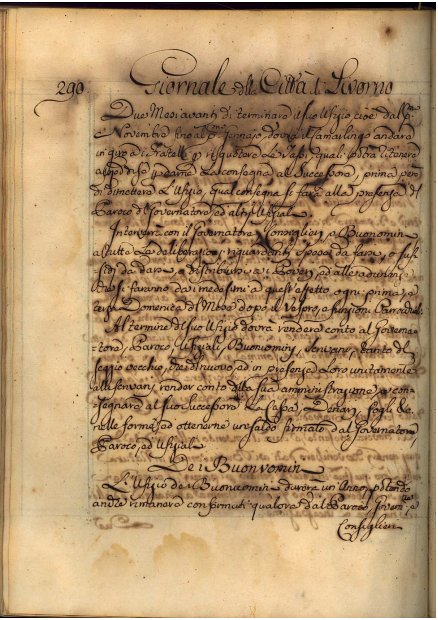 290. Giornale della Città di Livorno
Due Mesi avanti di terminare il suo Ufizio, cioè dal p.mo
Novembre fino al p.mo Gennajo, dovrà il Camarlingo andare
in giro a i Fratelli p riscuotere Le Tasse, quali potrà ritenere
p farne La consegna al Successore, prima però
di dimettere L'Ufizio, qual consegna si farà alla presenza del
Paroco Governatore ed altri Ufiziali.
Interverrà con il Governatore Consiglieri, e Buonomini
a tutte Le deliberazioni riguardanti Spese da farsi, o sussi
sidj da darsi, e distribuirsi a i Poveri, ed alle adunanze
che si faranno da i medesimi a quest'effetto ogni prima, e
terza Domenica del Mese dopo il Vespro, e funzioni Parochiali.
Al termine del suo Ufizio dovrà render conto al Governa-
tore, Paroco, Ufiziali, Buonuomini, Servanti, tanto del
seggio vecchio, che di nuovo, ed in presenza Loro unitamente
alli servanti, render conto della sua amministrazione, e con-
segnare al suo Successore La Cassa, Denari, fogli &c.
nelle forme, ed ottenerne un saldo firmato dal Governatore,
Paroco, ed Ufiziali.
De i Buonuomini
L'Ufizio de i Buonuomini durerà un'Anno, potendo
anche rimanere confermati qualora dal Paroco, Govern.re, e
Consiglieri